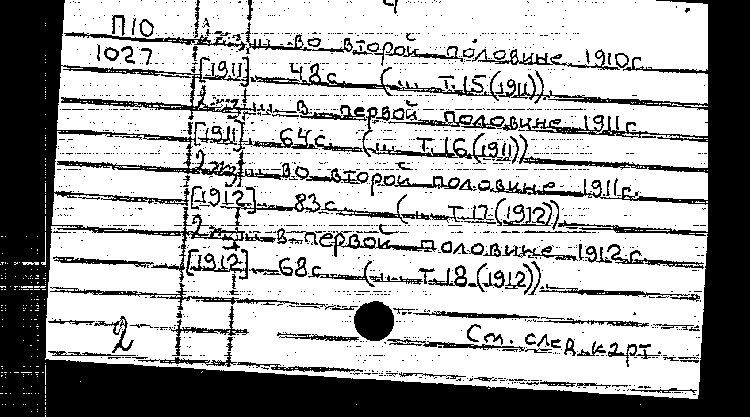 П10
1027
... во второй половине 1910г.
[1911]. 48с. (... Т.15(1911)).
... в первой половине 1911г.
[1911]. 64с. (... Т.16(1911))
... во второй половине 1911г.
[1912]. 83с. (... Т.17(1912)).
... в первой половине 1912г.
[1912]. 68с. (... Т.18(1912)).
2
См. след. карт.